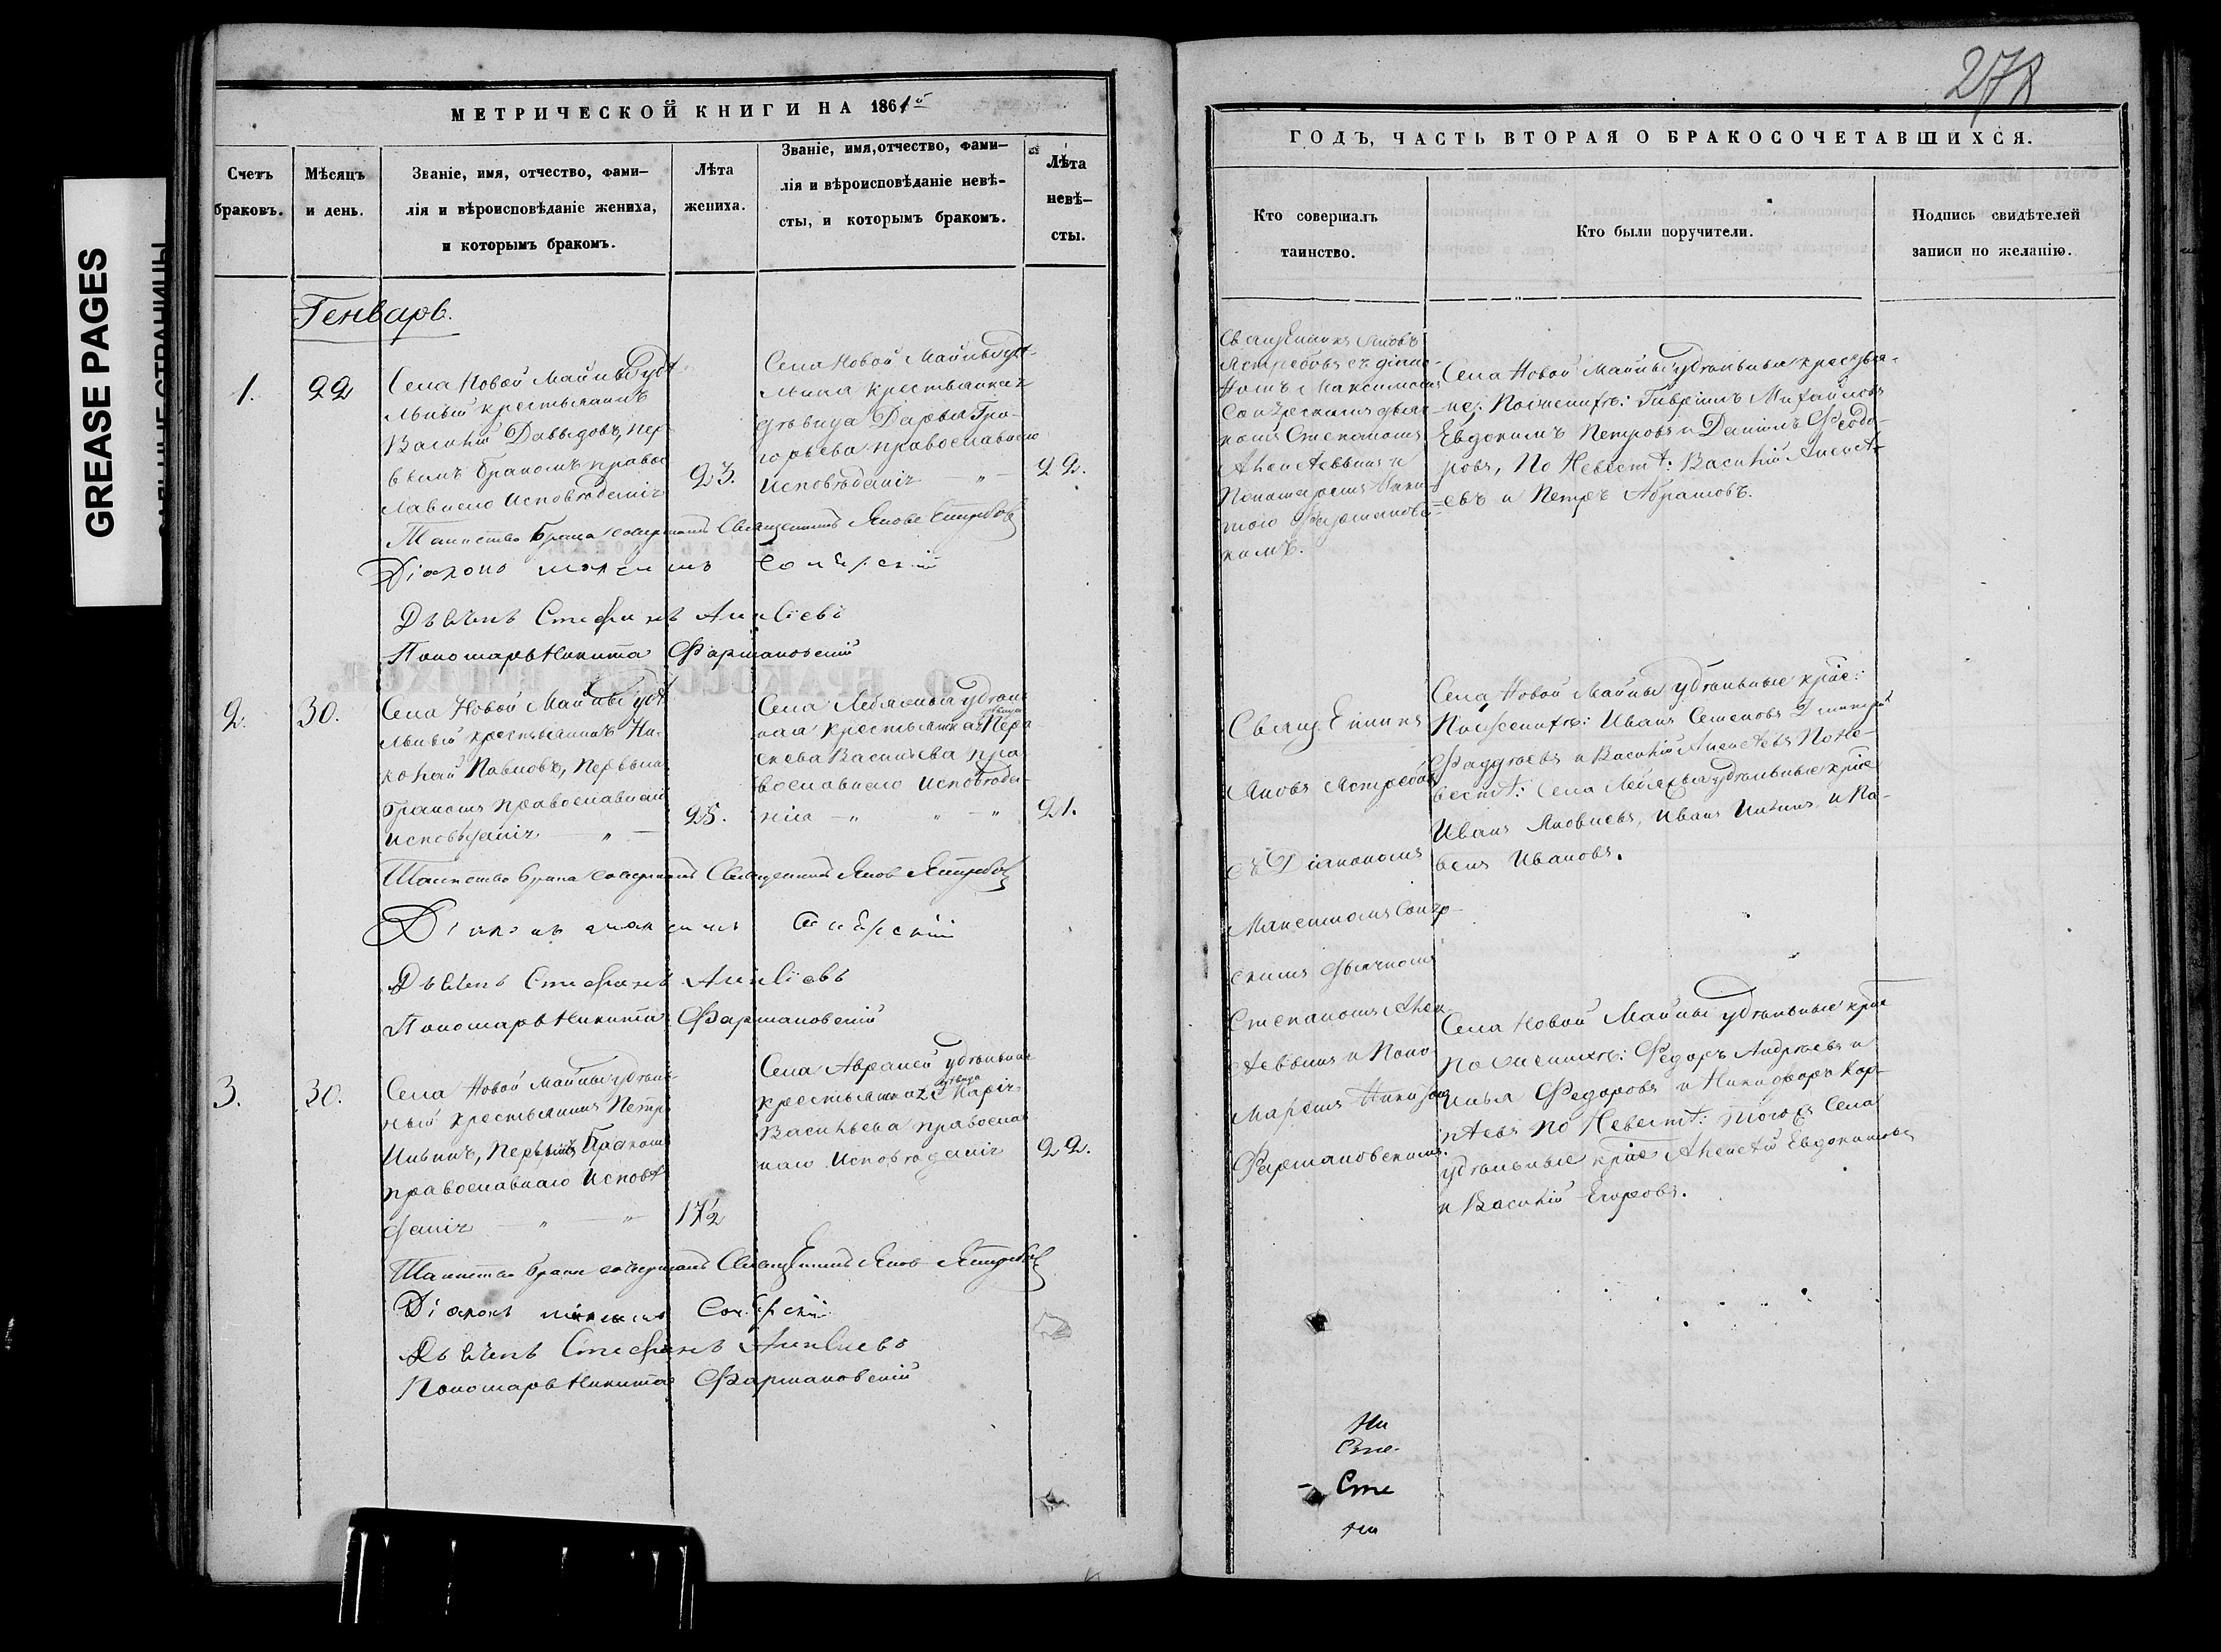 GREASE PAGES
МЕТРИЧЕСКОЙ КНИГИ НА 1861й
Счетъ браковъ.
Мѣсяцъ и день.
Званіе, имя, отчество, фами-
лія и вѣроисповѣданіе жениха,
и которымъ бракомъ.
Лѣта
жениха.
Званіе, имя, отчество, фами-
лія и вѣроисповѣданіе невѣ-
сты, и которымъ бракомъ.
Лѣта
невѣ-
сты.
Генварь.
1.
22
Села Новой Майны удѣ-
льный крестьянинъ
Василій Давыдовъ, пер
вымъ бракомъ правос
лавнаго исповѣданія
23.
Села Новой Майны удѣ-
льная крестьянская
дѣвица Дарья Гри-
горьева православнаго
исповѣданія
22.
Таинство брака совершалъ Священникъ Яковъ Ястребовъ
Діаконъ Максимъ
Дьячекъ Стефанъ Алексіевъ
Пономарь Никита Фармаковскій
2.
30.
Села Новой Майны удѣ
льный крестьянинъ Ни-
колай Павловъ, первымъ
бракомъ православнаго
исповѣданія
25.
Села Лебяжья удѣль
ная крестьянская дѣвица Пара
скева Васильева пра
вославнаго исповѣда-
нія
21.
Таинство брака совершалъ Священникъ Яковъ Ястребовъ
Діаконъ Максимъ
Дьячекъ Стефанъ Алексіевъ
Пономарь Никита Фармаковскій
3.
30.
Села Новой Майны удѣль-
ный крестьянинъ Петръ
Ильинъ, первымъ бракомъ
православнаго исповѣ
данія
17½
Села Авралей удѣльная
крестьянская дѣвица Марія
Васильева православ
наго исповѣданія
22.
Таинство брака совершалъ Священникъ Яковъ Ястребовъ
Діаконъ Максимъ
Дьячекъ Стефанъ Алексіевъ
Пономарь Никита Фармаковскій
278
ГОДЪ, ЧАСТЬ ВТОРАЯ О БРАКОСОЧЕТАВШИХСЯ.
Кто совершалъ
таинство.
Кто были поручители.
Подпись свидѣтелей
записи по желанію.
Священникъ Яковъ
Ястребовъ съ діако-
номъ Максимомъ
дьяч
комъ Степаномъ
Алексѣевымъ и
Пономаремъ Ники-
тою Фармаковс-
кимъ.
Села Новой Майны удѣльные крестья-
не: По женихѣ: Гаврiилъ Михайловъ
Евдокимъ Петровъ и Данiилъ Федо-
ровъ, По Невестѣ: Василій Алексѣ-
евъ и Петръ Абрамовъ.
Священникъ
Яковъ Ястребовъ
съ Діакономъ
Максимомъ
скимъ дьячкомъ
Степаномъ Алек
сѣевымъ и Поно-
маремъ Никитою
Фармаковскимъ.
Села Новой Майны удѣльные крае:
По женихѣ: Иванъ Семеновъ Дмитрій
Фаддѣевъ и Василій Алексѣевъ По Не-
вестѣ: Села Лебяжья удѣльные крае
Иванъ Яковлевъ, Иванъ Ильинъ и Па-
велъ Ивановъ.
Села Новой Майны удѣльные крае
по женихѣ: Федоръ Андрѣевъ и
Илья Федоровъ и Никифоръ Кар-
пѣевъ по Невестѣ: тогоже Села
удѣльные крае Алексѣй Евдокимовъ
и Василій Егоровъ.
Ни
Сте-
- Сте